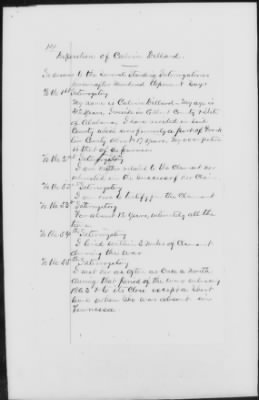 Deposition of Calvin Dillard.
In answer to the several Standing Interrogatories
hereinafter numbered Deponent Says:
To the 1st Interrogatory
My name is Calvin Dillard - My age is
years, I reside in Colbert County & State
of Alabama, I have resided in said
County which was formerly a part of Frank
lin County about 17 years, My occupation
is that of a farmer
To the 2nd Interrogatory
I am neither related to the Claimant nor
interested in the success of her Claim
To the 52nd Interrogatory
I am here to testify for the Claimant
To the 53rd Interrogatory
For about 12 years, intimately all the
time.
To the 54th Interrogatory
I lived within 2 miles of Claimant
during the War
To the 55th Interrogatory
I met her as often as once a month
during that period of the war
1862 & to its Close except a short
time when she was absent in
Tennessee.